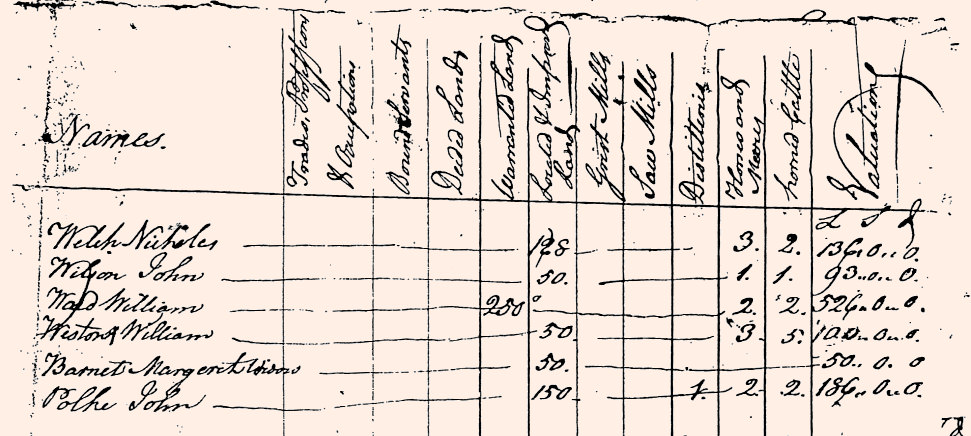 Names.
Trades, Professions
& Occupations
Bound Servants
Deeded Lands
Warranted Lands
Located & Improved
Land
Grist Mills
Saw Mills
Distilleries
Horses and
Mares
horned Cattle
Valuation
£ S d
Welch Nicholes 198 3. 2. 136..0..0.
Wilson John 50. 1. 1. 93..0..0.
Ward William 250 2. 2. 526..0..0.
Weston William 50 3. 5. 100..0..0.
Barnet Margeret Widow 50. 50..0..0
Polke John 150 1. 2. 2. 186..0..0.